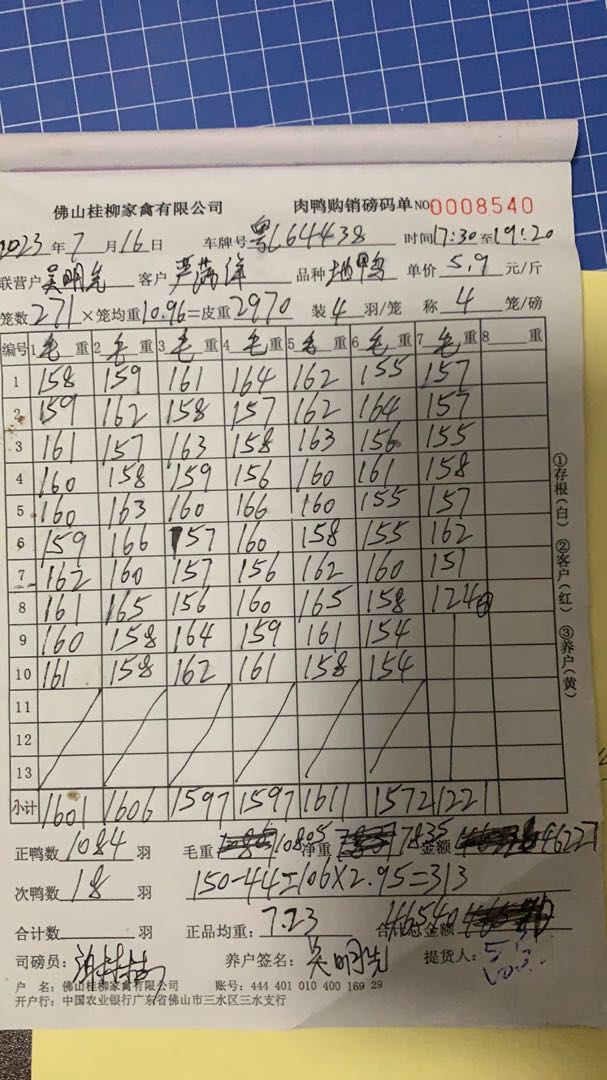 佛山桂柳家禽有限公司 肉鸭购销磅码单 NO 0008540
2023年7月16日 车牌号 粤L64438 时间17:30至19:20
联营户 客户 品种 地鸭 单价 5.9 元/斤
笼数271×笼均重10.96=皮重2970 装4羽/笼 称4笼/磅
编号 1毛重 2毛重 3毛重 4毛重 5毛重 6毛重 7毛重 8 重
1 158 159 161 164 162 155 157
2 159 162 158 157 162 164 157
3 161 157 163 158 163 156 155
4 160 158 159 156 160 161 158
5 160 163 160 166 160 155 157
6 159 166 157 160 158 155 162
7 162 160 157 156 162 160 151
8 161 165 156 160 165 158 124
9 160 158 164 159 161 154
10 161 158 162 161 158 154
11
12
13
小计 1601 1606 1597 1597 1611 1572 1221
①存根(白) ②客户(红) ③养户(黄)
正鸭数1084羽 毛重 10805 净重 7835 金额 46227
次鸭数18羽 150-44=106×2.95=313
合计数 羽 正品均重:7.23 46540 合计总金额
司磅员: 养户签名:吴明先 提货人:
户 名:佛山桂柳家禽有限公司 账号:444 401 010 400 169 29
开户行:中国农业银行广东省佛山市三水区三水支行